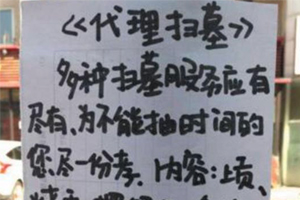 《代理扫墓》
多种扫墓服务应有
尽有、为不能抽时间的
您尽一份孝。内容:上贡、